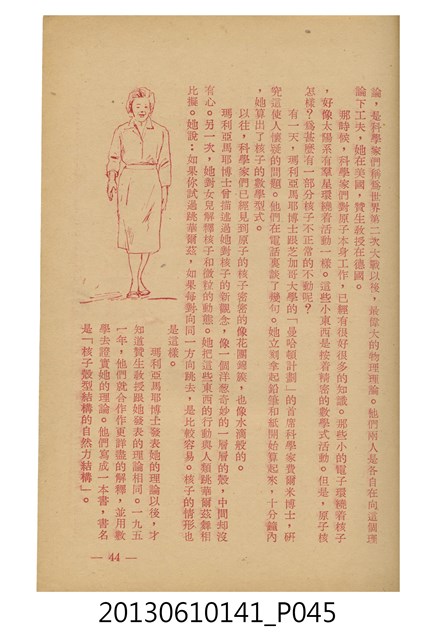 論，是科學家們稱爲世界第二次大戰以後，最偉大的物理理論。他們兩人是各自在向這個理
論下工夫，她在美國，贊生教授在德國。
那時候，科學家們對原子本身工作，已經有很好很多的知識。那些小的電子環繞着核子
，好像太陽系有羣星環繞着活動一樣。這些小東西是按着精密的數學式活動。但是，原子核
怎樣？爲甚麽有一部分核子不正常的不動呢？
有一天，瑪利亞馬耶博士跟芝加哥大學的「曼哈頓計劃」的首席科學家費爾米博士，研
究這使人懷疑的問題。他們在電話裏談了幾句。她立刻拿起鉛筆和紙開始算起來，十分鐘內
，她算出了核子的數學型式。
以往，科學家們已經見到原子的核子密密的像花團錦簇，也像水滴般的。
瑪利亞馬耶博士曾描述過她對核子的新觀念，像一個洋葱奇妙的一層層的殼，中間却沒
有心。另一次，她對女兒解釋核子和微粒的動態。她把這些東西的行動與人類跳華爾茲舞相
比擬。她說：如果你試過跳華爾茲，如果每對向同一方向跳去，是比較容易。核子的情形也
是這樣。
瑪利亞馬耶博士發表她的理論以後，才
知道贊生教授跟她發表的理論相同。一九五
一年，他們就合作作更詳盡的解釋，並用數
學去證實她的理論。他們寫成一本書，書名
是「核子殼型結構的自然力結構」。
— 44 —
20130610141_P045